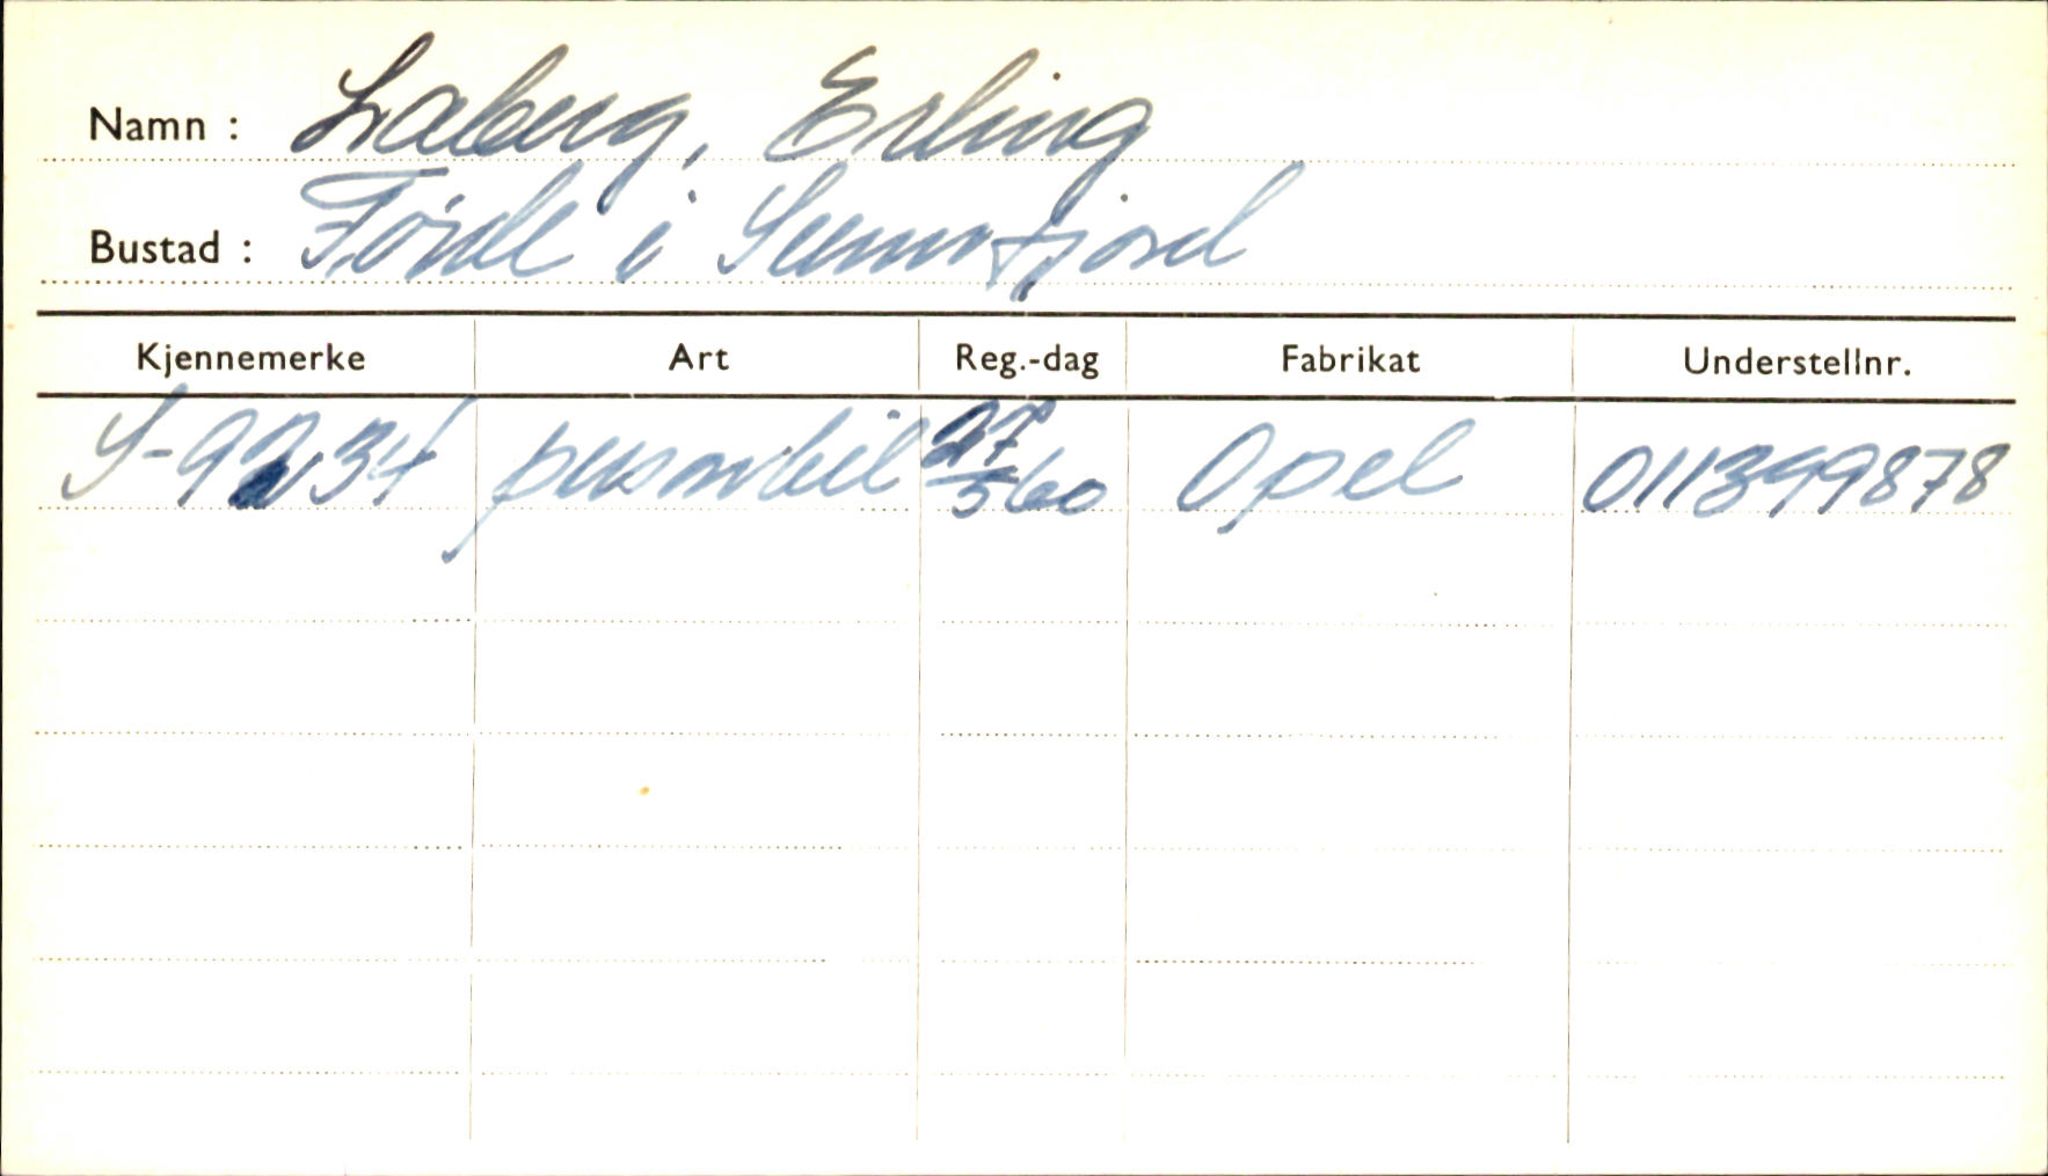 Namn : Laberg, Erling
Bustad : Førde i Sunnfjord
Kjennemerke Art Reg.-dag Fabrikat Understellnr.
S-9234 personbil 27/5 60 Opel 011399878